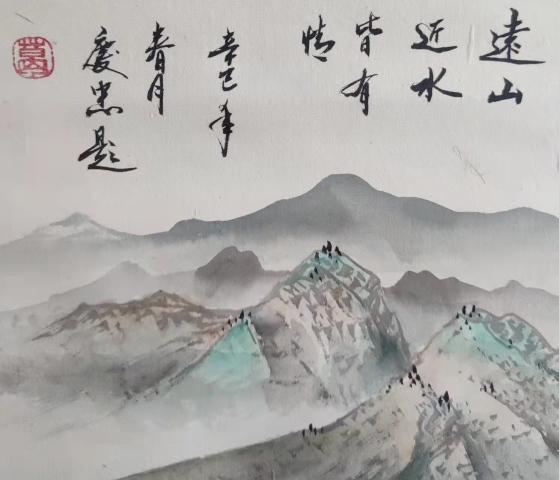 遠山
近水
皆有
情
辛巳年
春月
慶忠題